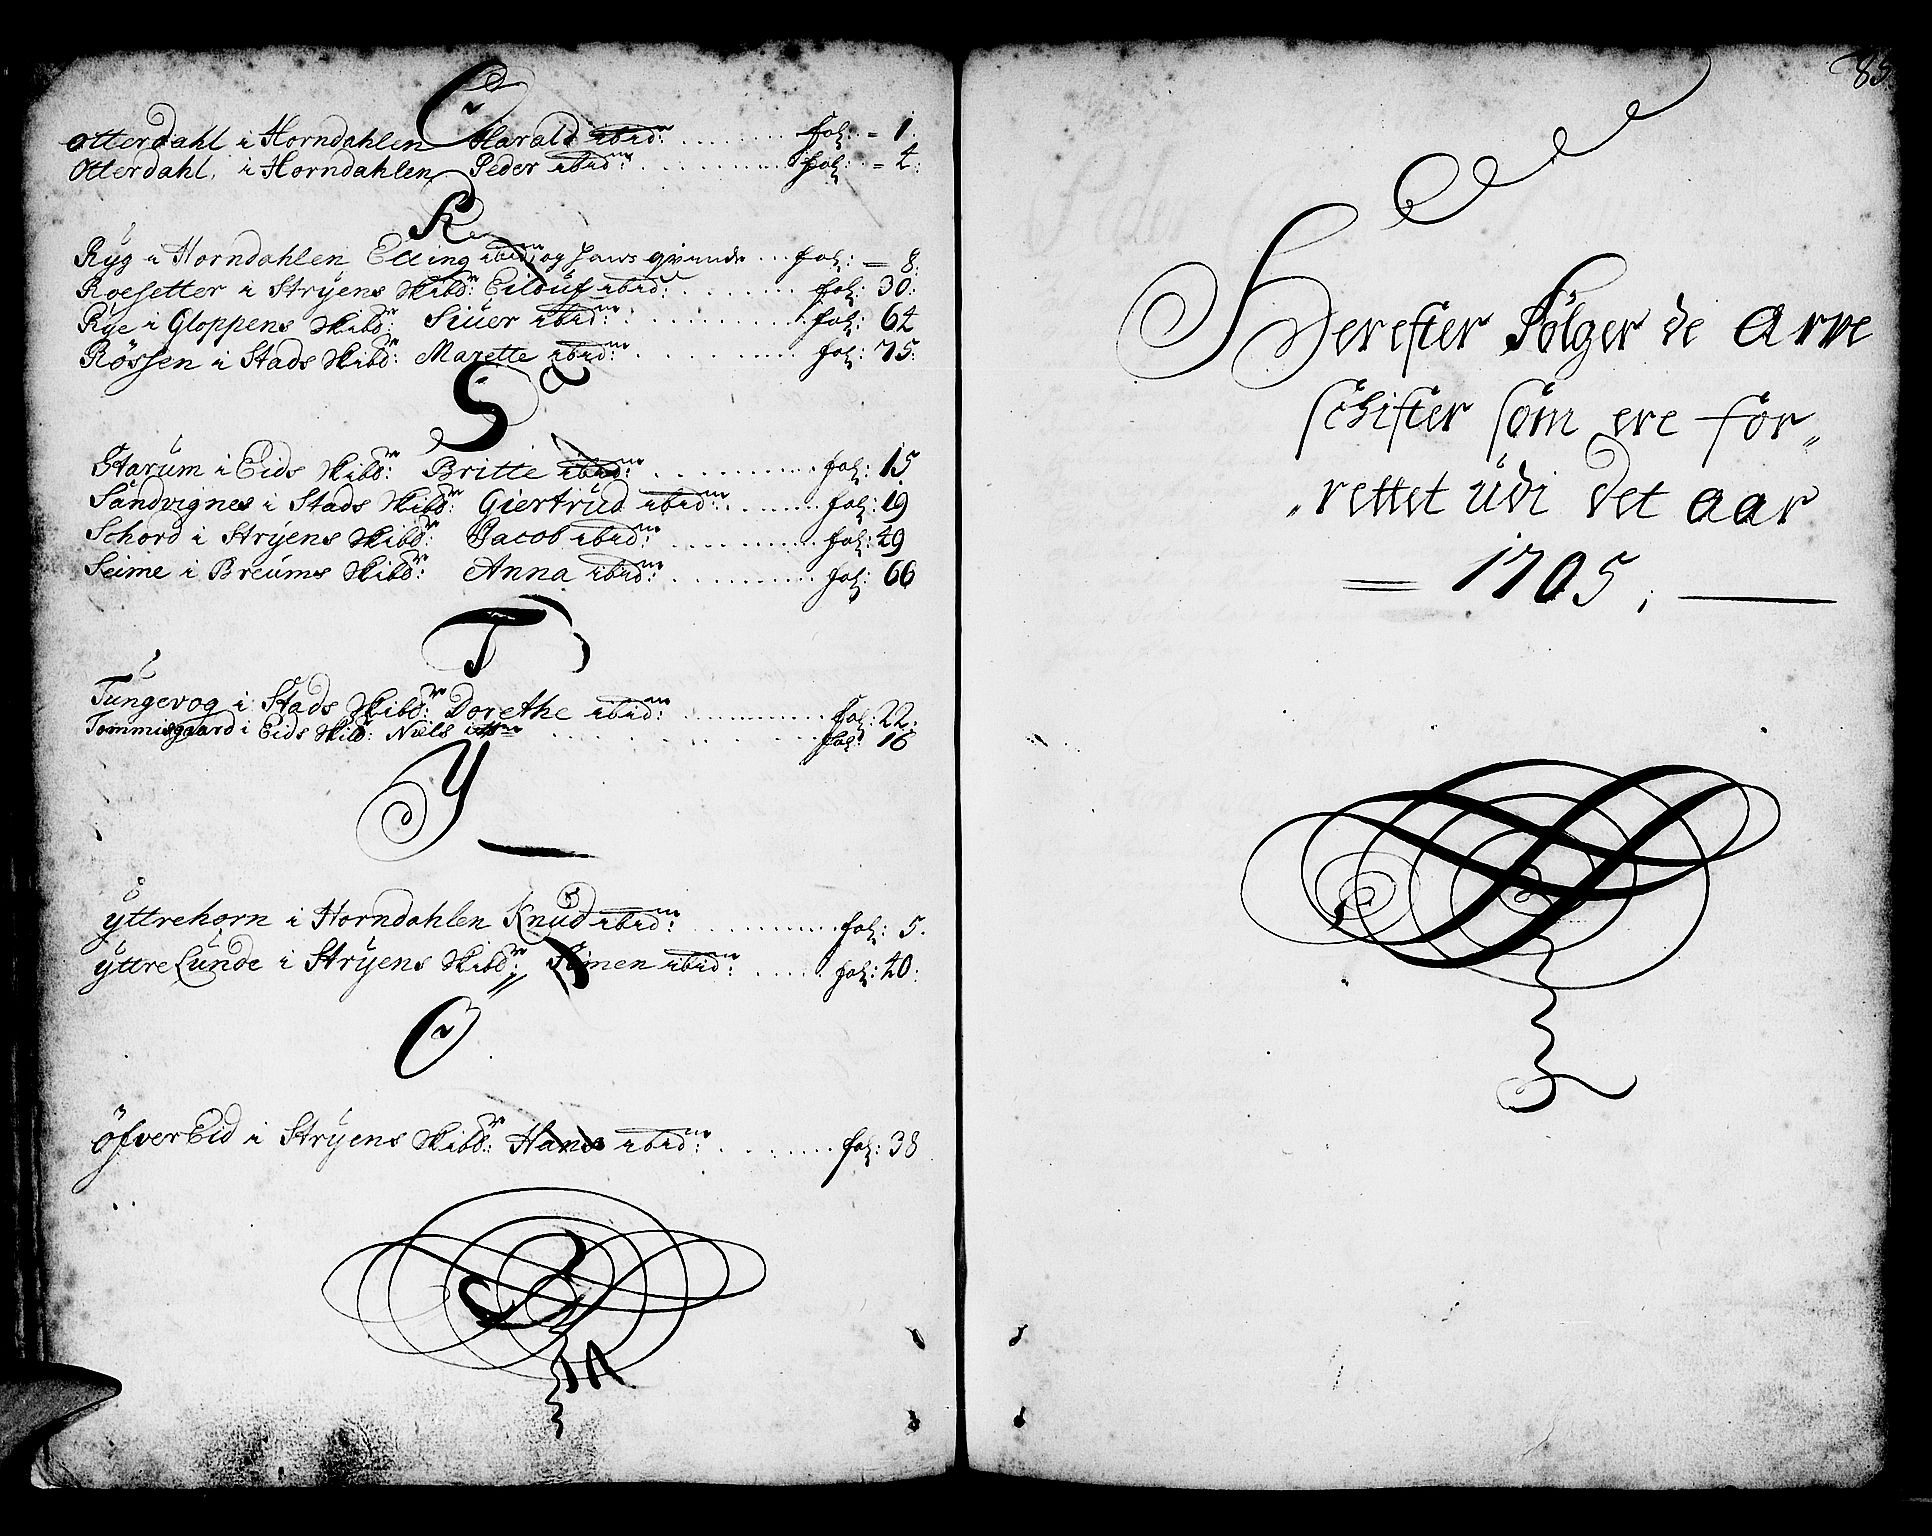 O
Otterdahl i Horndahlen Harald ibid: ....... fol: = 1.
Otterdahl, i Horndahlen Peder ibid: ....... fol: = 4.
R
Ryg i Horndahlen Elling ibid: og hans qvinde ... fol: = 8.
Roesetter i Stryens Skibd: Eiluf ibid: ....... fol: 30.
Rye i Gloppens Skibd: Siuer ibid: ....... fol: 64
Røssen i Stads Skibd: Marette ibid: ....... fol: 75.
S
Starum i Eids Skibd: Britte ibid: ....... fol: 15
Sandvignes i Stads Skibd: Giertrud ibid: ....... fol: 19
Schord i Stryens Skibd: Jacob ibid: ....... fol: 49
Seime i Breums Skibd: Anna ibid: ....... fol: 66
T
Tungevog i Stads Skibd: Dorethe ibid: ....... fol: 22.
Tommisgaard i Eids Skibd: Niels ....... fol: 16
Y
yttrehorn i Horndahlen Knud ibid: ....... fol: 5.
yttre Lunde i Stryens Skibd: Simen ibid: ..... fol: 40.
O
öfver Eid i Stryens Skibd: Hans ibid: ....... fol: 38
Herefter Følger de Arve
schifter som ere for„
„rettet udi det aar
= 1705. —